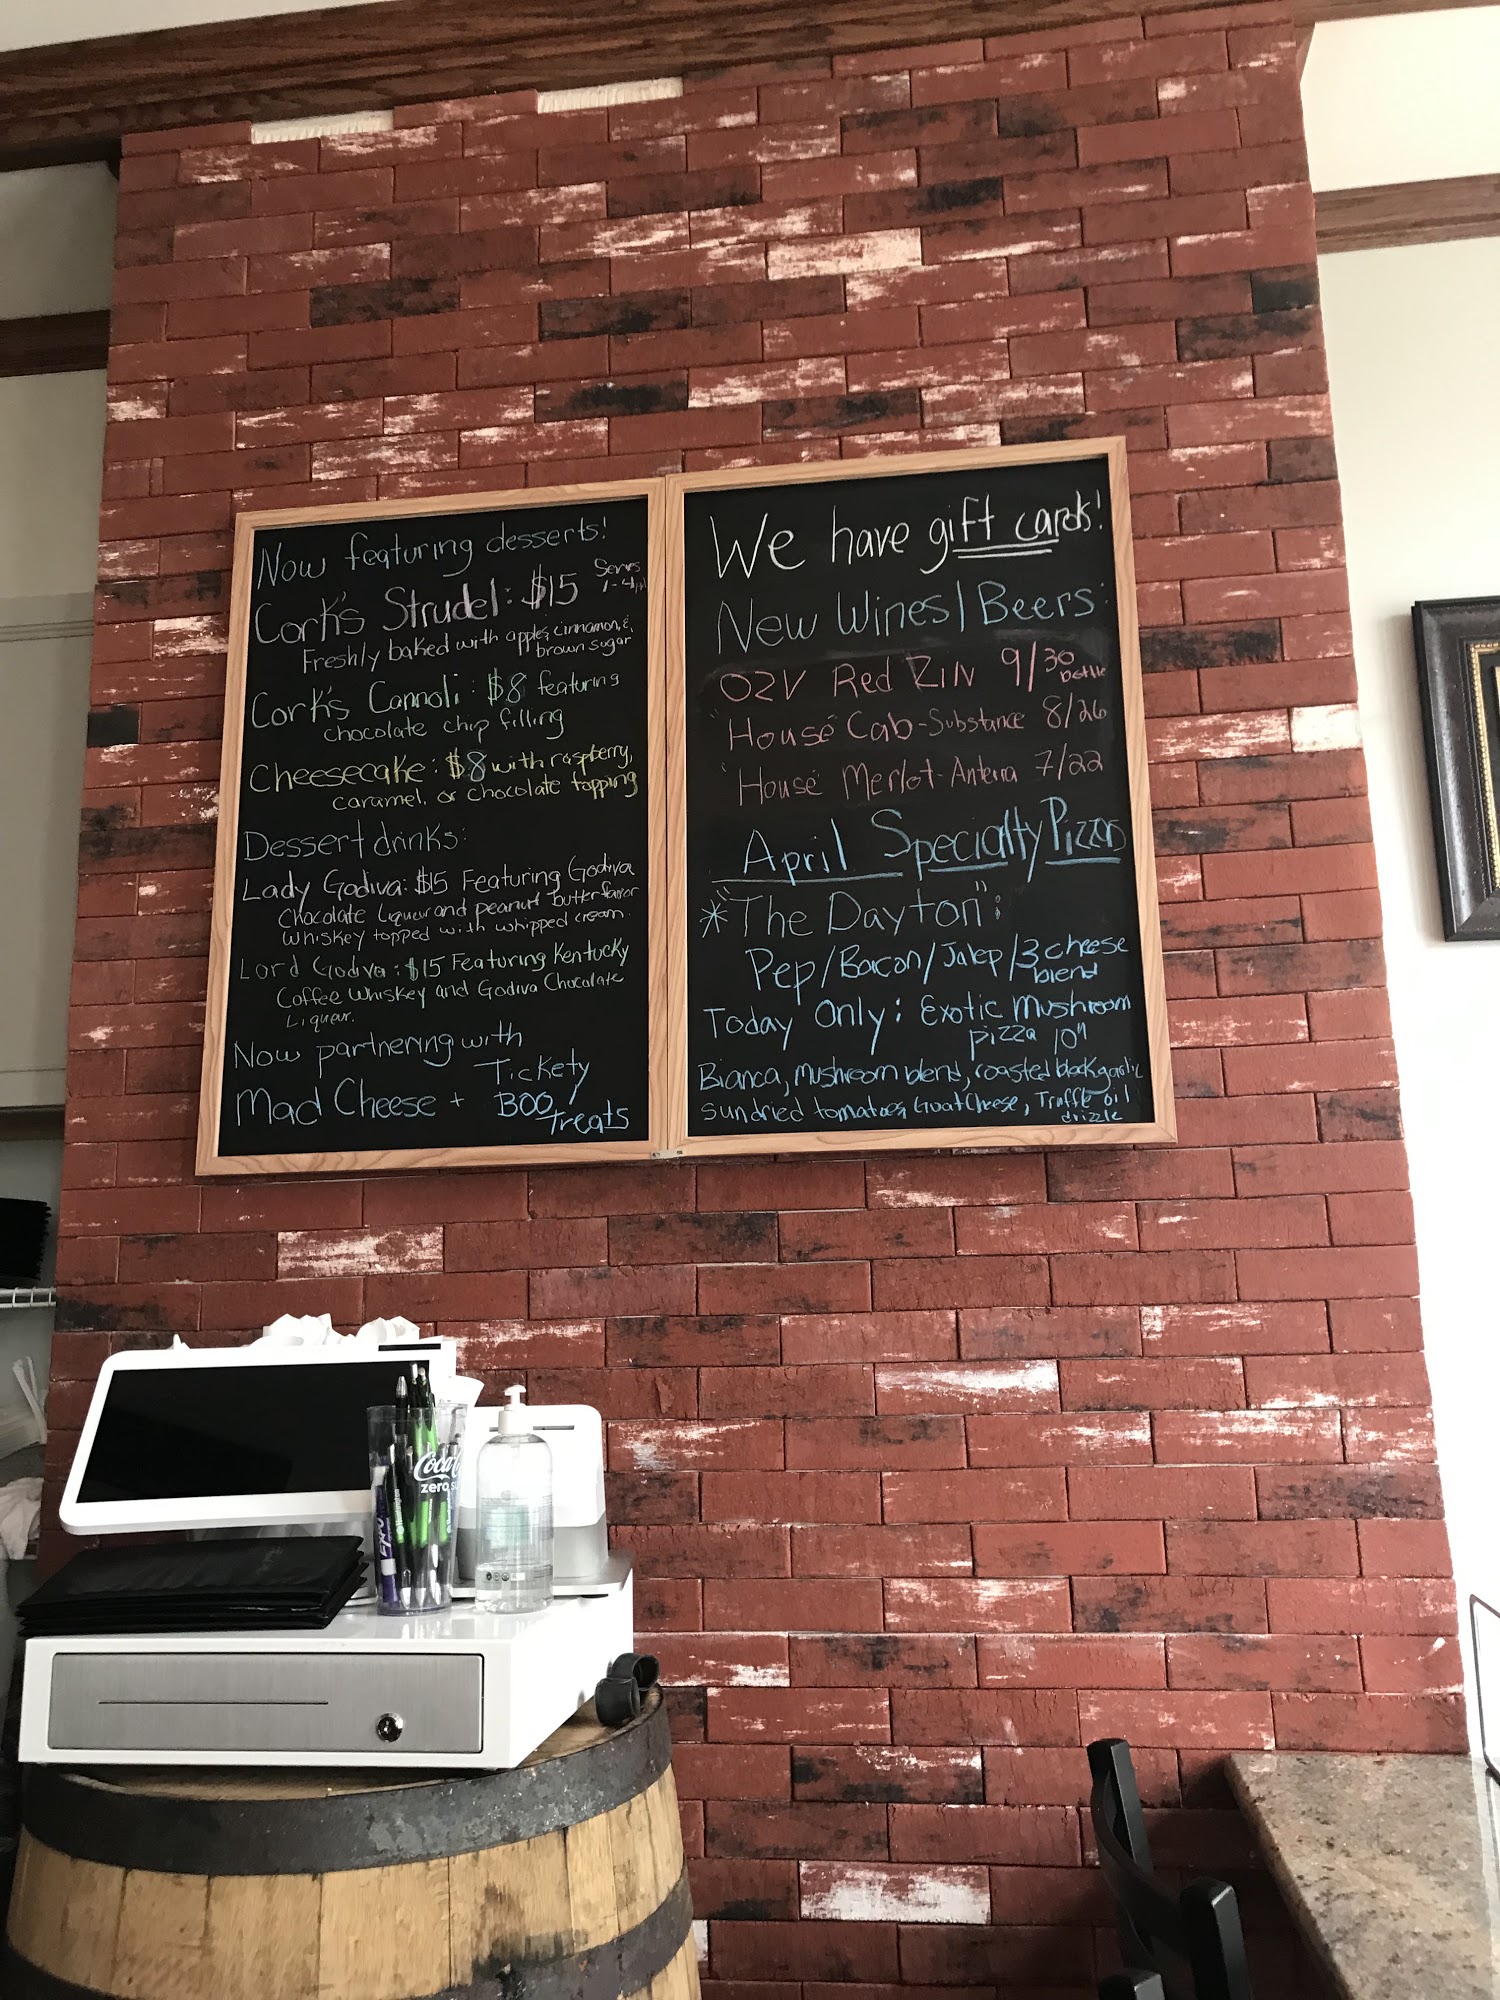 Now featuring desserts!
Cork's Strudel: $15 Serves
Freshly baked with apples, cinnamon, &
brown sugar
Cork's Cannoli: $8 featuring
chocolate chip filling
Cheesecake: $8 with raspberry,
caramel, or chocolate topping
Dessert drinks:
Lady Godiva: $15 Featuring Godiva
Chocolate Liqueur and peanut butter flavor
Whiskey topped with whipped cream.
Lord Godiva: $15 Featuring Kentucky
Coffee Whiskey and Godiva Chocolate
Liqueur.
Now partnering with
Mad Cheese + Tickety
BOO
Treats
We have gift cards!
New Wines/Beers:
OZV Red ZIN 9/30
bottle
"House" Cab-Substance 8/26
"House" Merlot-Anterra 7/22
April Specialty Pizzas
*"The Dayton":
Pep/Bacon/Jalep/3 cheese
blend
Today Only: Exotic Mushroom
pizza 10"
Bianca, Mushroom blend, roasted black garlic
sundried tomatoes, Goat Cheese, Truffle oil
drizzle
zero